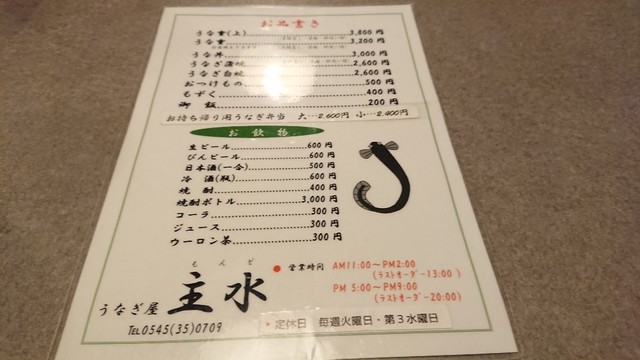 お品書き
うな重(上) 3,800円
うな重 3,200円
うな丼 3,000円
うなぎ蒲焼 2,600円
うなぎ白焼 2,600円
おつけもの 500円
もずく 400円
御飯 200円
お持ち帰り用うなぎ弁当 大…2,600円 小…2,400円
お飲物
生ビール 600円
びんビール 600円
日本酒(一合) 500円
冷酒(瓶) 600円
焼酎 400円
焼酎ボトル 3,000円
コーラ 300円
ジュース 300円
ウーロン茶 300円
営業時間 AM11:00～PM2:00
(ラストオーダー13:00)
PM 5:00～PM9:00
(ラストオーダー20:00)
もんど
うなぎ屋 主水
TEL0545(35)0709
*定休日 毎週火曜日・第3水曜日